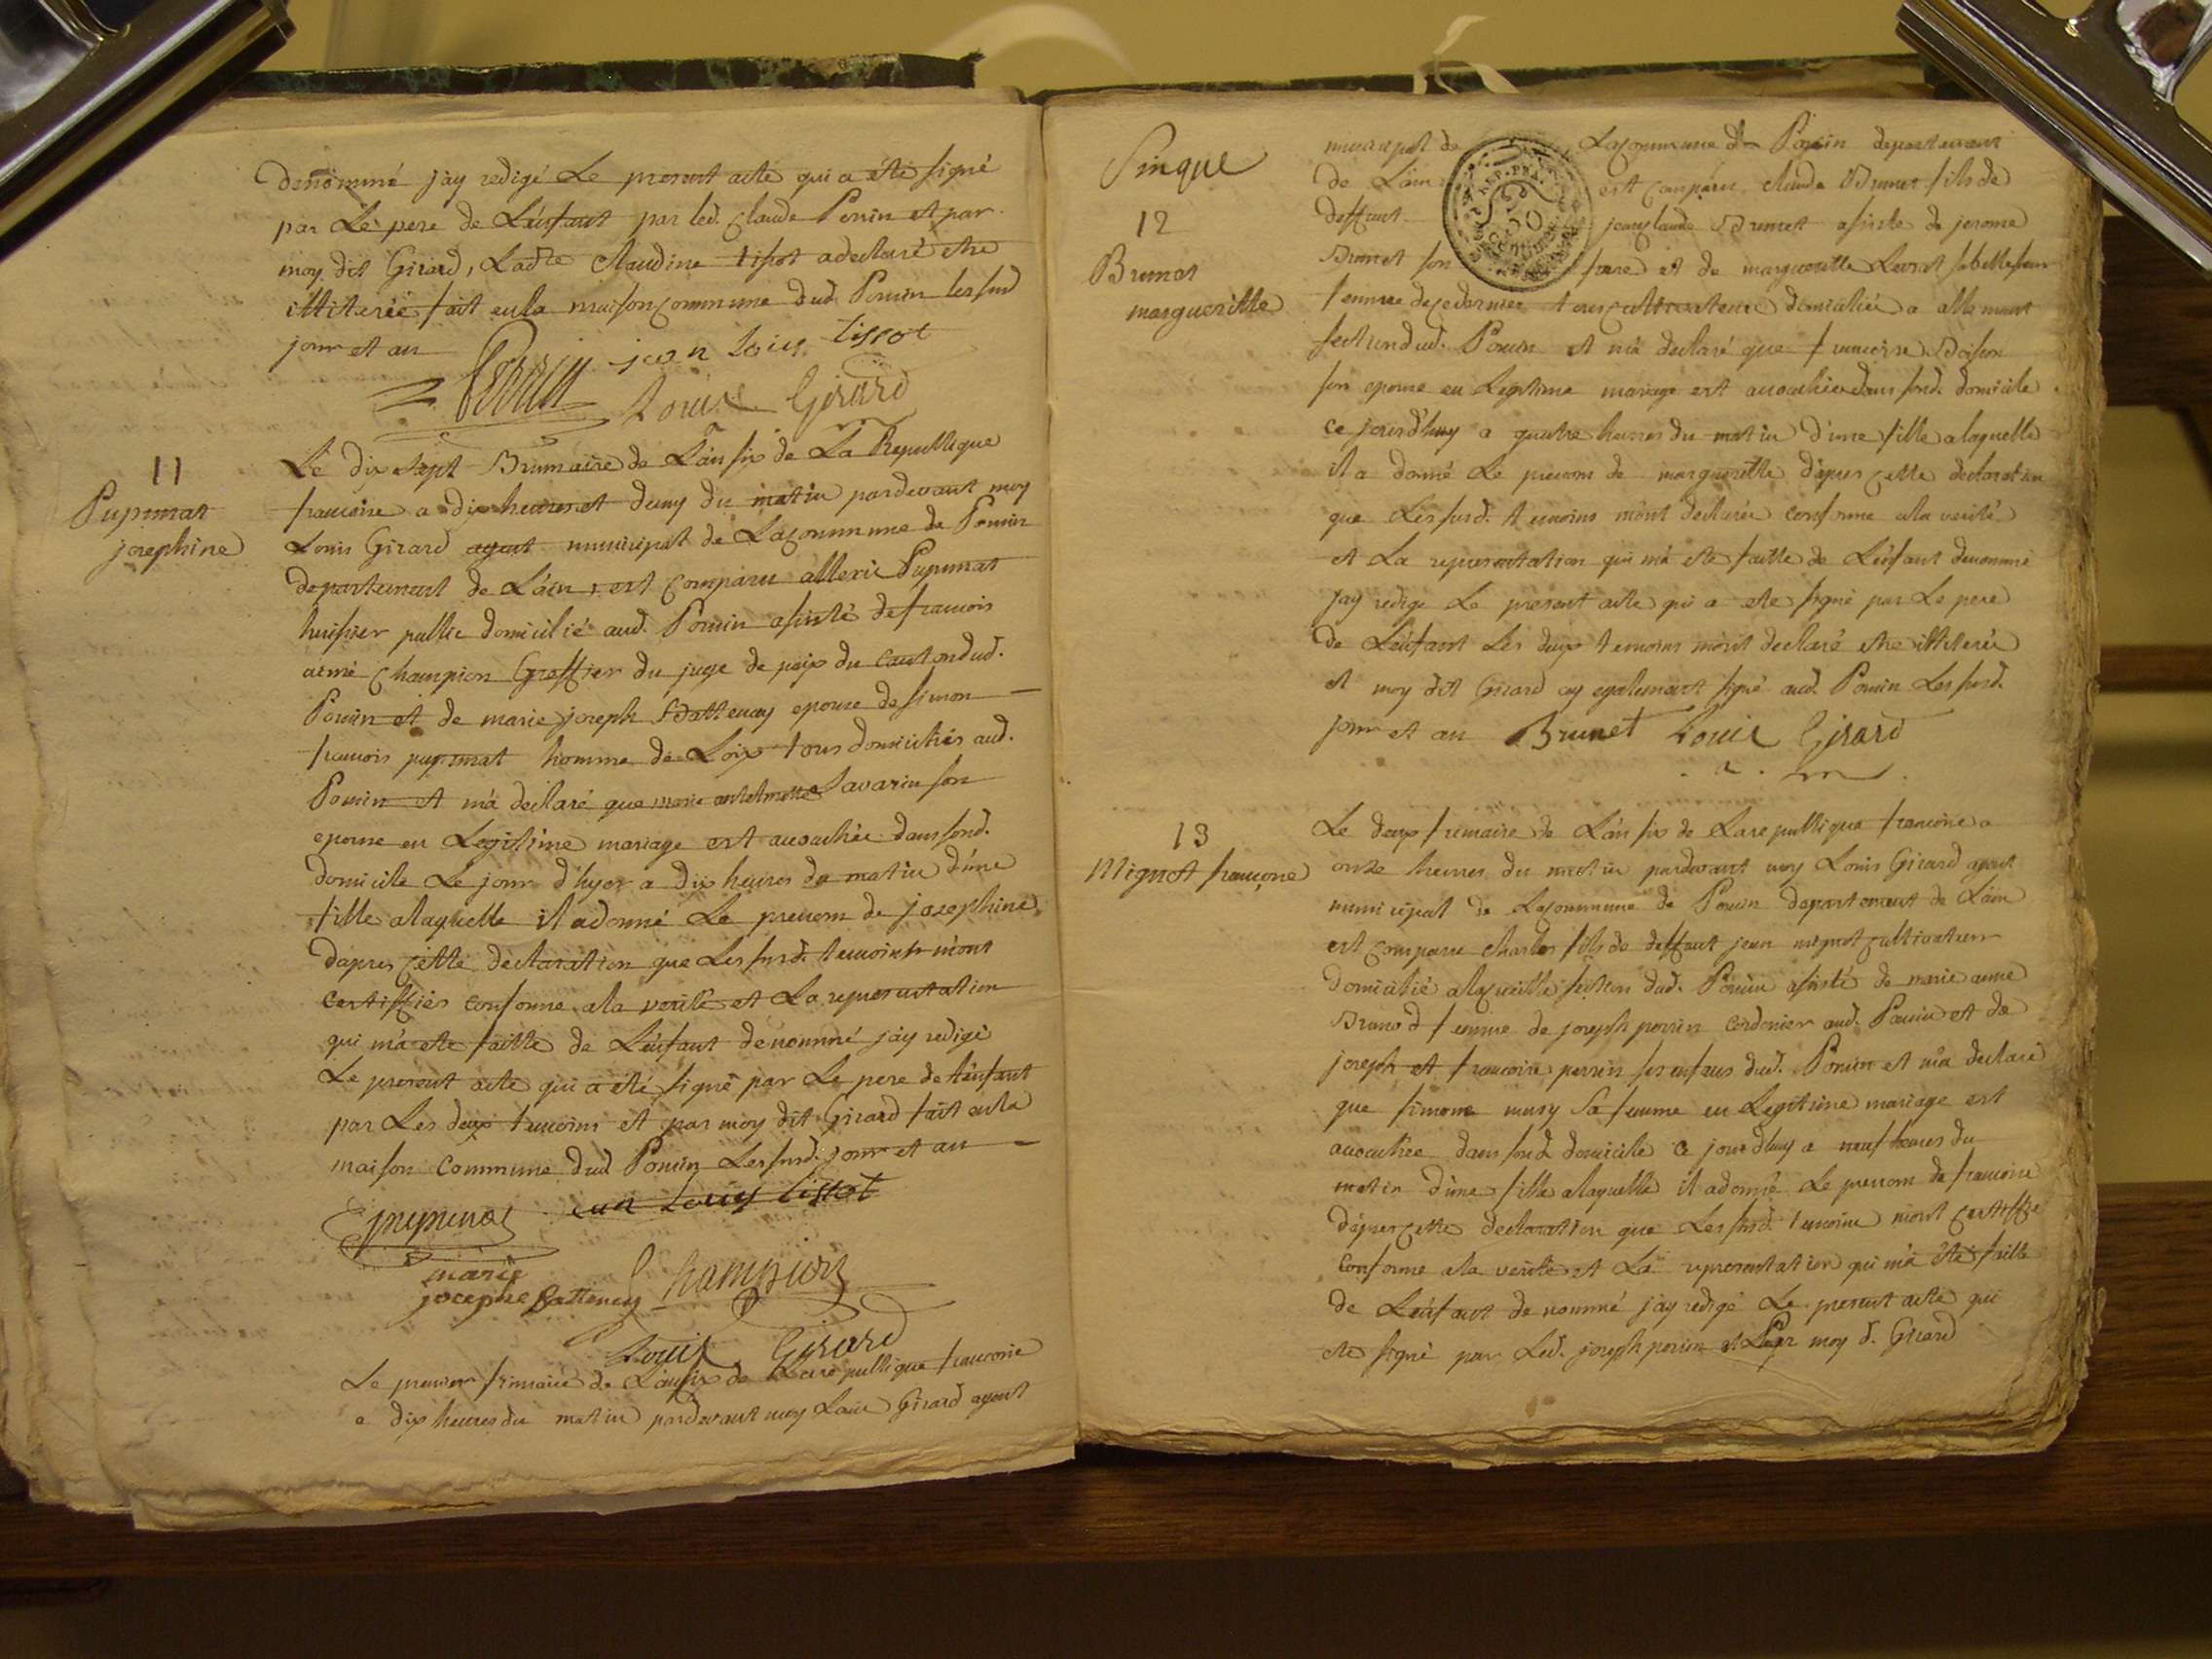 denommé j'ay redigé Le present acte qui a été signé
par Le pere de L'enfant par led. Claude Perrin et par
moy dit Girard, Ladte Claudine tisot a declaré etre
illiterée fait en la maison commune dud. Poncin les susd
jour et an
Perrin jean Louis tissot
Louis Girard
11
Pupunat
josephine
Le dix sept Brumaire de L'an six de La Republique
francoise a dix heures et demy du matin pardevant moy
Louis Girard agent municipal de La commune de Poncin
departement de L'ain, est comparu allexis Pupunat
huissier public domicilié aud. Poncin assisté de francois
aimé Champion Greffier du juge de paix du canton dud.
Poncin et de marie joseph Battenay epouse de simon
francois pupunat homme de Loix tous domiciliés aud.
Poncin et m'a declaré que marie antelmette Savarin son
epouse en Legitime mariage est accouchée dans sond.
domicile Le jour d'hyer a dix heures du matin d'une
fille a laquelle il a donné Le prenom de josephine,
dapres cette declaration que Les susd. temoins m'ont
certiffiés conforme a la verité et La representation
qui m'a ete faitte de L'enfant denommé j'ay redigé
Le present acte qui a été signé par Le pere de L'enfant
par Les deux temoins et par moy dit Girard fait en la
maison commune dud Poncin Les susd. jour et an
pupunat jean Louis tissot
marie
josephe Battenay Champion
Louis Girard
Le premier frimaire de L'an six de La republique francoise
a dix heures du matin pardevant moy Louis Girard agent
Sinque
12
Brunet
margueritte
municipal de La commune de Poncin departement
de L'ain est comparu Claude Brunet fils de
deffunt jean claude Brunet assisté de jerome
Brunet son frere et de margueritte Levrat sa belle soeur
femme de ce dernier tous cultivateurs domiciliés a allement
section dud. Poncin et m'a declaré que francoise
son epouse en Legitime mariage est accouchée dans sond. domicile
ce jourd'huy a quatre heures du matin d'une fille a laquelle
il a donné Le prenom de margueritte d'apres cette declaration
que Les susd. temoins m'ont declarée conforme a la verité
et La representation qui m'a ete faitte de L'enfant denommé
jay redigé Le present acte qui a ete signé par Le pere
de L'enfant Les deux temoins m'ont declaré etre illiterés
et moy dit Girard ay egalement signé aud. Poncin Les susd.
jour et an Brunet Louis Girard
13
Mignot francoise
Le deux frimaire de L'an six de La republique francoise a
onze heures du matin pardevant moy Louis Girard agent
municipal de La commune de Poncin departement de L'ain
est comparu charles fils de deffunt jean mignot cultivateur
domicilié a la section dud. Poncin assisté de marie anne
Brunod femme de joseph perrin cordonier aud. Poncin et de
joseph et francoise perrin ses enfans dud. Poncin et m'a declaré
que simone musy sa femme en Legitime mariage est
accouchée dans sond. domicile ce jourd'huy a neuf heures du
matin d'une fille a laquelle il a donné Le prenom de francoise
d'apres cette declaration que Les susd. temoins m'ont certiffié
conforme a la verité et La representation qui m'a été faitte
de L'enfant denommé j'ay redigé Le present acte qui
ete signé par Led. joseph perrin et par moy d. Girard